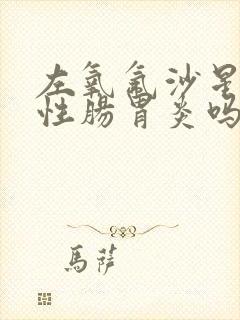 左氧氟沙星
性肠胃炎吗
馬萨